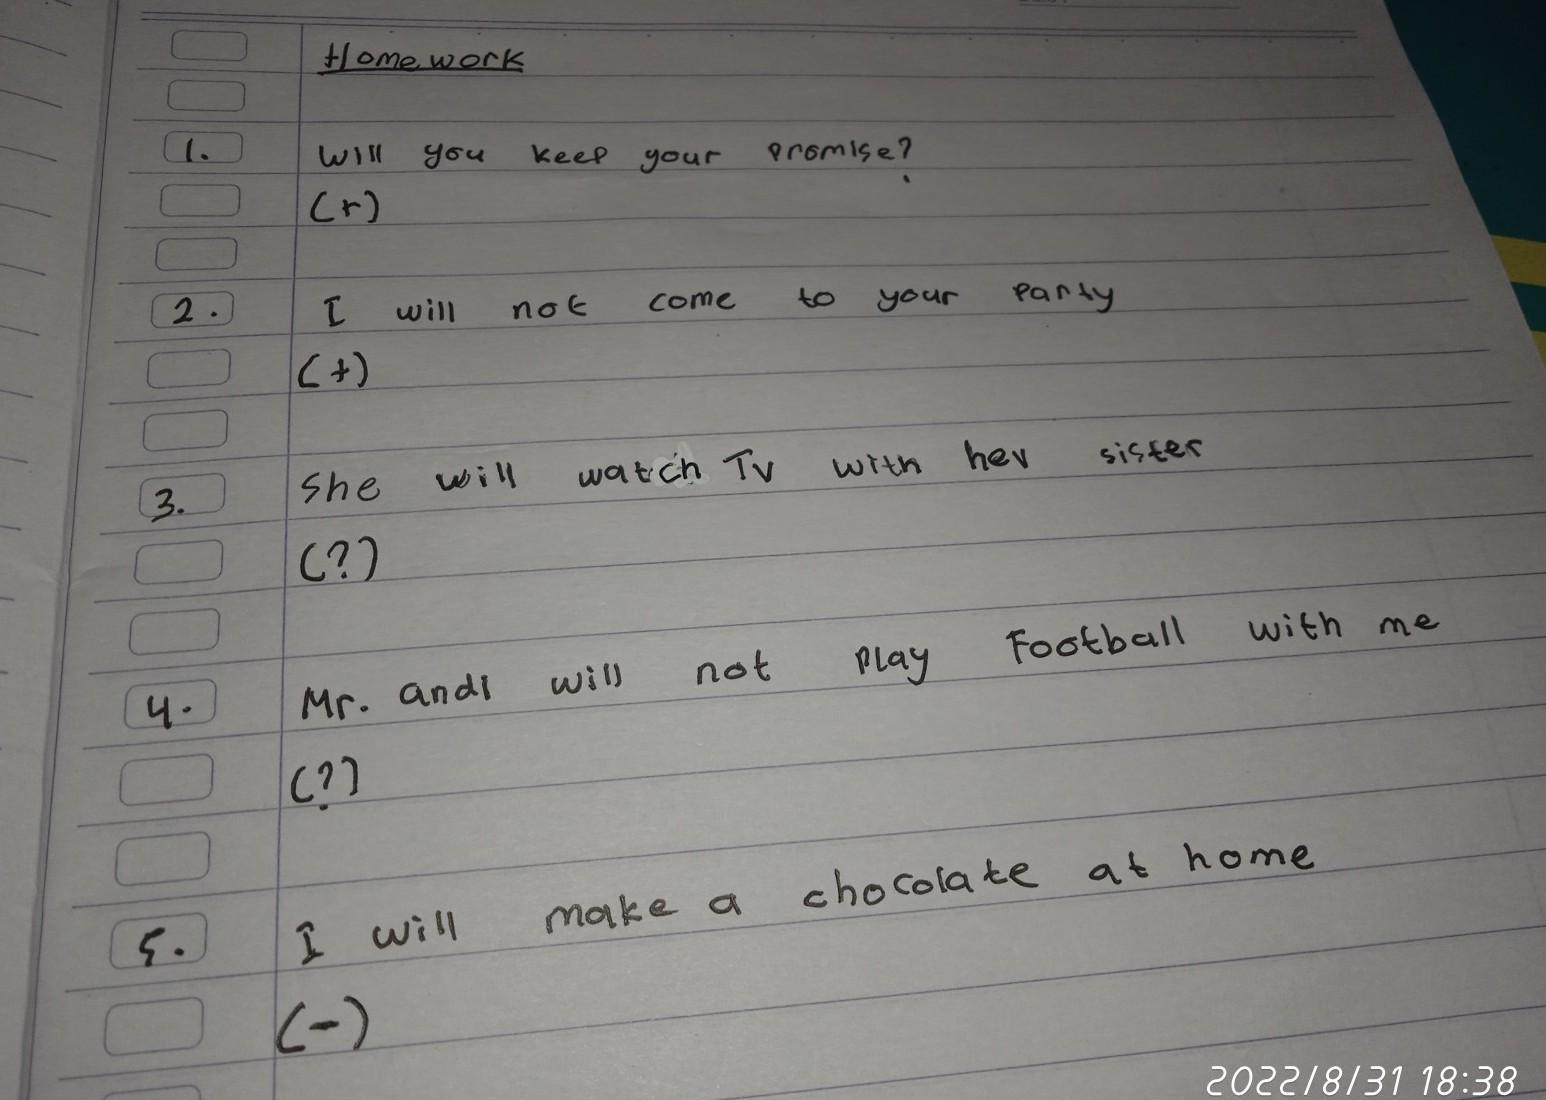 Homework
1. Will you keep your promise?
(+)
2. I will not come to your party
(+)
3. She will watch TV with her sister
(?)
4. Mr. andi will not play Football with me
(?)
5. I will make a chocolate at home
(-)
2022/8/31 18:38